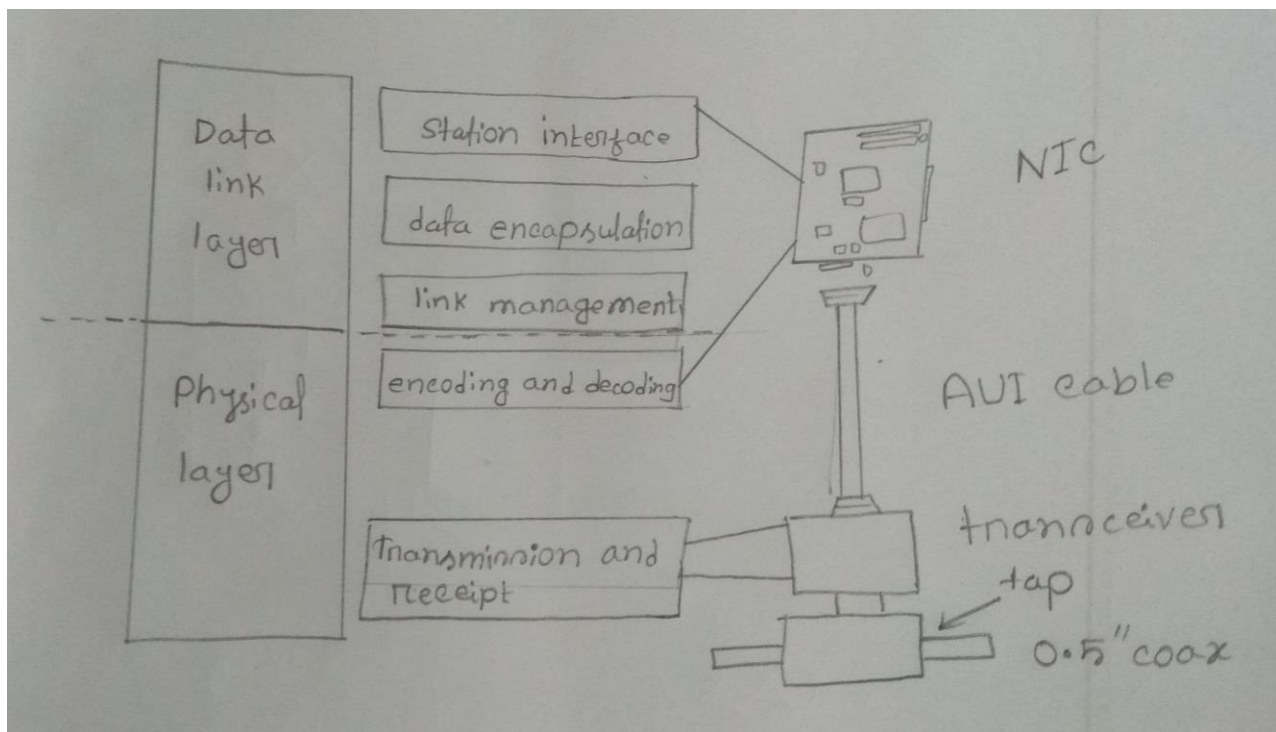 Data
link
layer
Physical
layer
Station interface
data encapsulation
link management
encoding and decoding
Transmission and
receipt
NIC
AUI cable
transceiver
tap
0.5" coax